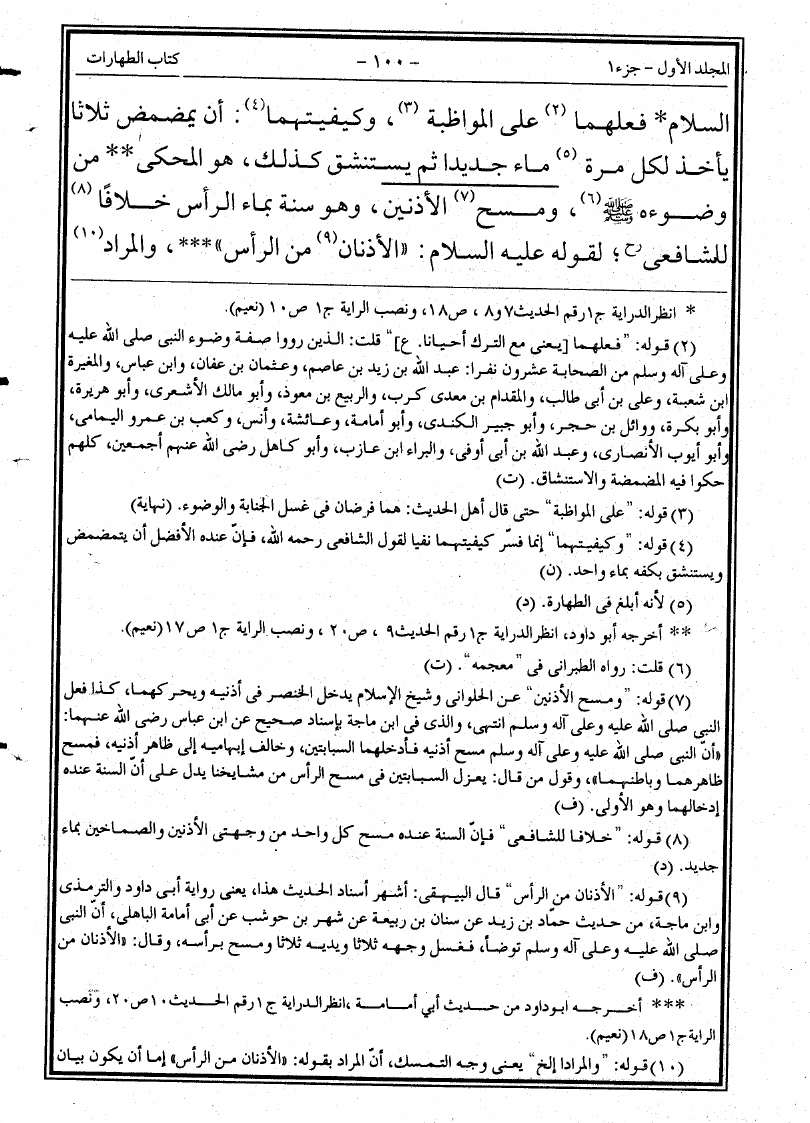 المجلد الأول – جزء ١ - ١٠٠ - كتاب الطهارات
السلام* فعلهما (٢) على المواظبة (٣)، وكيفيتهما (٤): أن يمضمض ثلاثا
يأخذ لكل مرة (٥) ماء جديدا ثم يستنشق كذلك، هو المحكى** من
وضوءه ﷺ (٦)، ومسح (٧) الأذنين، وهو سنة بماء الرأس خلافًا (٨)
للشافعى رح؛ لقوله عليه السلام: «الأذنان (٩) من الرأس»***، والمراد (١٠)
* انظر الدراية ج١ رقم الحديث ٧ و٨ ، ص١٨، ونصب الراية ج١ ص١٠ (نعيم).
(٢) قوله: "فعلهما [يعنى مع الترك أحيانا. ع]" قلت: الذين رووا صفة وضوء النبى صلى الله عليه
وعلى آله وسلم من الصحابة عشرون نفرا: عبد الله بن زيد بن عاصم، وعثمان بن عفان، وابن عباس، والمغيرة
ابن شعبة، وعلى بن أبى طالب، والمقدام بن معدى كرب، والربيع بن معوذ، وأبو مالك الأشعرى، وأبو هريرة،
وأبو بكرة، ووائل بن حجر، وأبو جبير الكندى، وأبو أمامة، وعائشة، وأنس، وكعب بن عمرو اليمامى،
وأبو أيوب الأنصارى، وعبد الله بن أبى أوفى، والبراء ابن عازب، وأبو كاهل رضى الله عنهم أجمعين، كلهم
حكوا فيه المضمضة والاستنشاق. (ت)
(٣) قوله: "على المواظبة" حتى قال أهل الحديث: هما فرضان فى غسل الجنابة والوضوء. (نهاية)
(٤) قوله: "وكيفيتهما" إنما فسّر كيفيتهما نفيا لقول الشافعى رحمه الله، فإنّ عنده الأفضل أن يتمضمض
ويستنشق بكفه بماء واحد. (ن)
(٥) لأنه أبلغ فى الطهارة. (د)
** أخرجه أبو داود، انظر الدراية ج١ رقم الحديث ٩ ، ص٢٠ ، ونصب الراية ج١ ص١٧ (نعيم).
(٦) قلت: رواه الطبرانى فى "معجمه". (ت)
(٧) قوله: "ومسح الأذنين" عن الحلوانى وشيخ الإسلام يدخل الخنصر فى أذنيه ويحركهما، كذا فعل
النبى صلى الله عليه وعلى آله وسلم انتهى، والذى فى ابن ماجة بإسناد صحيح عن ابن عباس رضى الله عنهما:
«أنّ النبى صلى الله عليه وعلى آله وسلم مسح أذنيه فأدخلهما السبابتين، وخالف إبهاميه إلى ظاهر أذنيه، فمسح
ظاهرهما وباطنهما»، وقول من قال: يعزل السبابتين فى مسح الرأس من مشايخنا يدل على أنّ السنة عنده
إدخالهما وهو الأولى. (ف)
(٨) قوله: "خلافا للشافعى" فإنّ السنة عنده مسح كل واحد من وجهتى الأذنين والصماخين بماء
جديد. (د)
(٩) قوله: "الأذنان من الرأس" قال البيهقى: أشهر أسناد الحديث هذا، يعنى رواية أبى داود والترمذى
وابن ماجة، من حديث حمّاد بن زيد عن سنان بن ربيعة عن شهر بن حوشب عن أبى أمامة الباهلى، أنّ النبى
صلى الله عليه وعلى آله وسلم توضأ، فغسل وجهه ثلاثا ويديه ثلاثا ومسح برأسه، وقال: «الأذنان من
الرأس». (ف)
*** أخرجه ابوداود من حديث أبي أمامة ،انظر الدراية ج١ رقم الحديث ١٠ ص٢٠، ونصب
الراية ج١ ص١٨ (نعيم).
(١٠) قوله: "والمرادا إلخ" يعنى وجه التمسك، أنّ المراد بقوله: «الأذنان من الرأس» إما أن يكون بيان